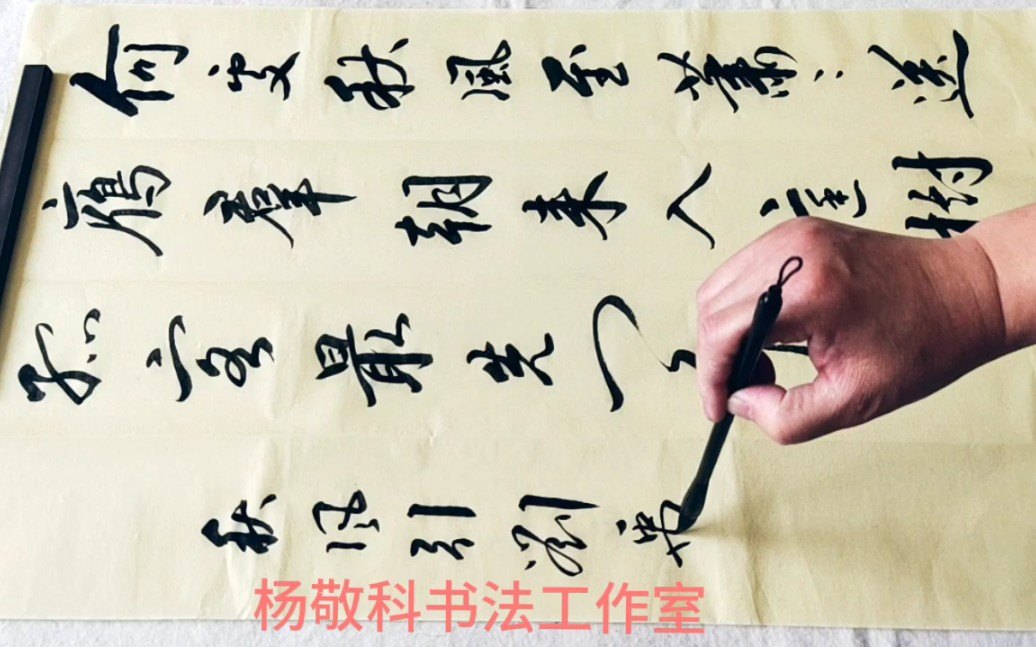 何处秋風至萧：送
雁羣朝来入庭樹
孤客最先闻
秋风引刘
杨敬科书法工作室